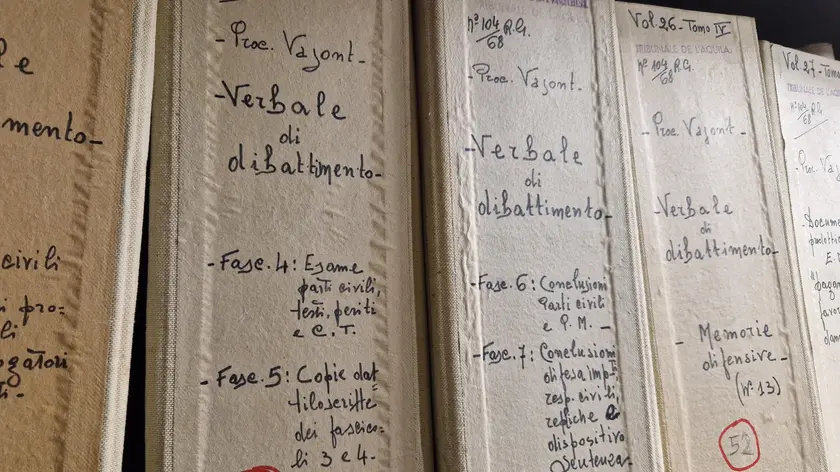 e
mento-
civili
i pro=
li
ogatori
i-
- Proc. Vajont-
-Verbale
di
dibattimento-
- Fasc. 4: Esame
parti civili,
testi, periti
e C.T.
- Fasc. 5: Copie dat
tiloscritte
dei fascico-
li 3 e 4-
n° 104 R.G.
68
- Proc. Vajont.
-Verbale
di
dibattimento-
- Fasc. 6: Conclusioni
Parti civili
e P.M. -
- Fasc. 7: Conclusioni
difesa imp.ti
resp. civili,
repliche e
dispositivo
sentenza-
Vol. 26 - Tomo IV
TRIBUNALE DE L'AQUILA
n° 104 R.G.
68
- Proc. Vajont -
-Verbale
di
dibattimento-
- Memorie
difensive-
(n° 13)
52
Vol. 27 - Tomo
TRIBUNALE DE L'AQ
n° 104 R.G.
68
- Proc. Vaj
- Docume
E.
"pagam
favor
dann